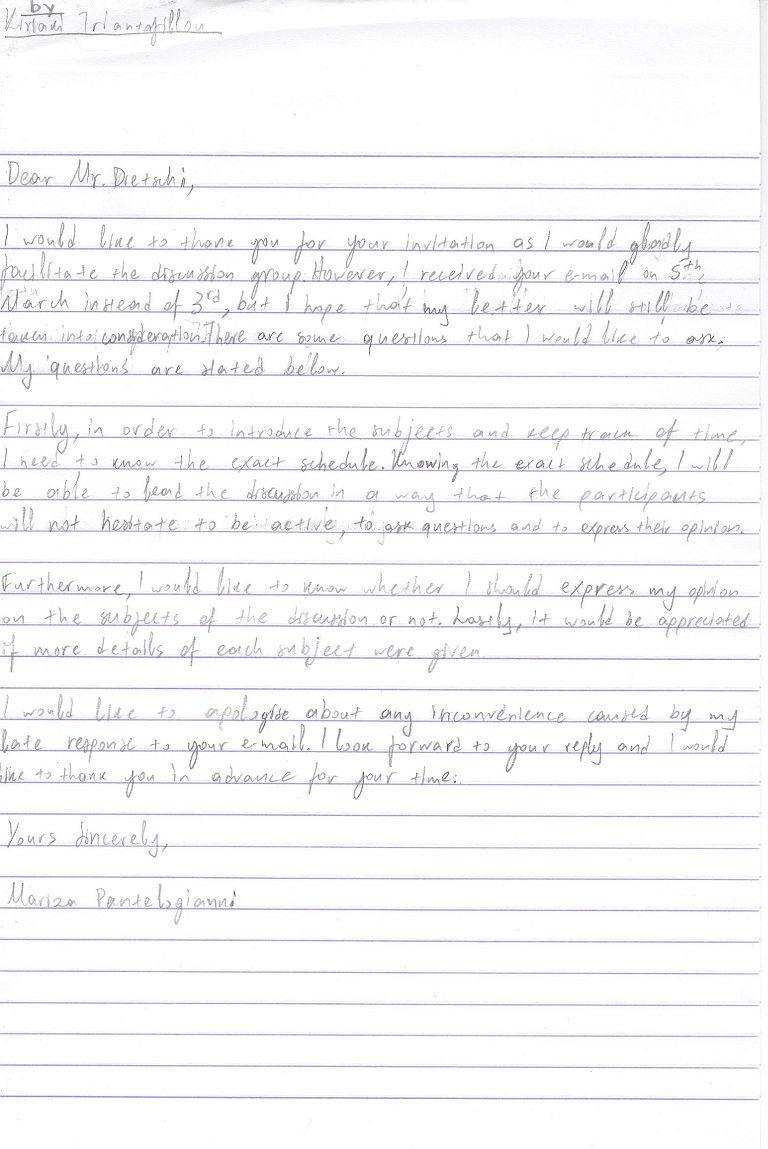 by
Kiriaki Triantafillou
Dear Mr. Dietschi,
I would like to thank you for your invitation as I would gladly
facilitate the discussion group. However, I received your e-mail on 5th,
March instead of 3rd, but I hope that my letter will still be
taken into consideration. There are some questions that I would like to ask.
My questions are stated below.
Firstly, in order to introduce the subjects and keep track of time,
I need to know the exact schedule. Knowing the exact schedule, I will
be able to lead the discussion in a way that the participants
will not hesitate to be active, to ask questions and to express their opinion.
Furthermore, I would like to know whether I should express my opinion
on the subjects of the discussion or not. Lastly, it would be appreciated
if more details of each subject were given.
I would like to apologise about any inconvenience caused by my
late response to your e-mail. I look forward to your reply and I would
like to thank you in advance for your time.
Yours sincerely,
Mariza Pantelogianni